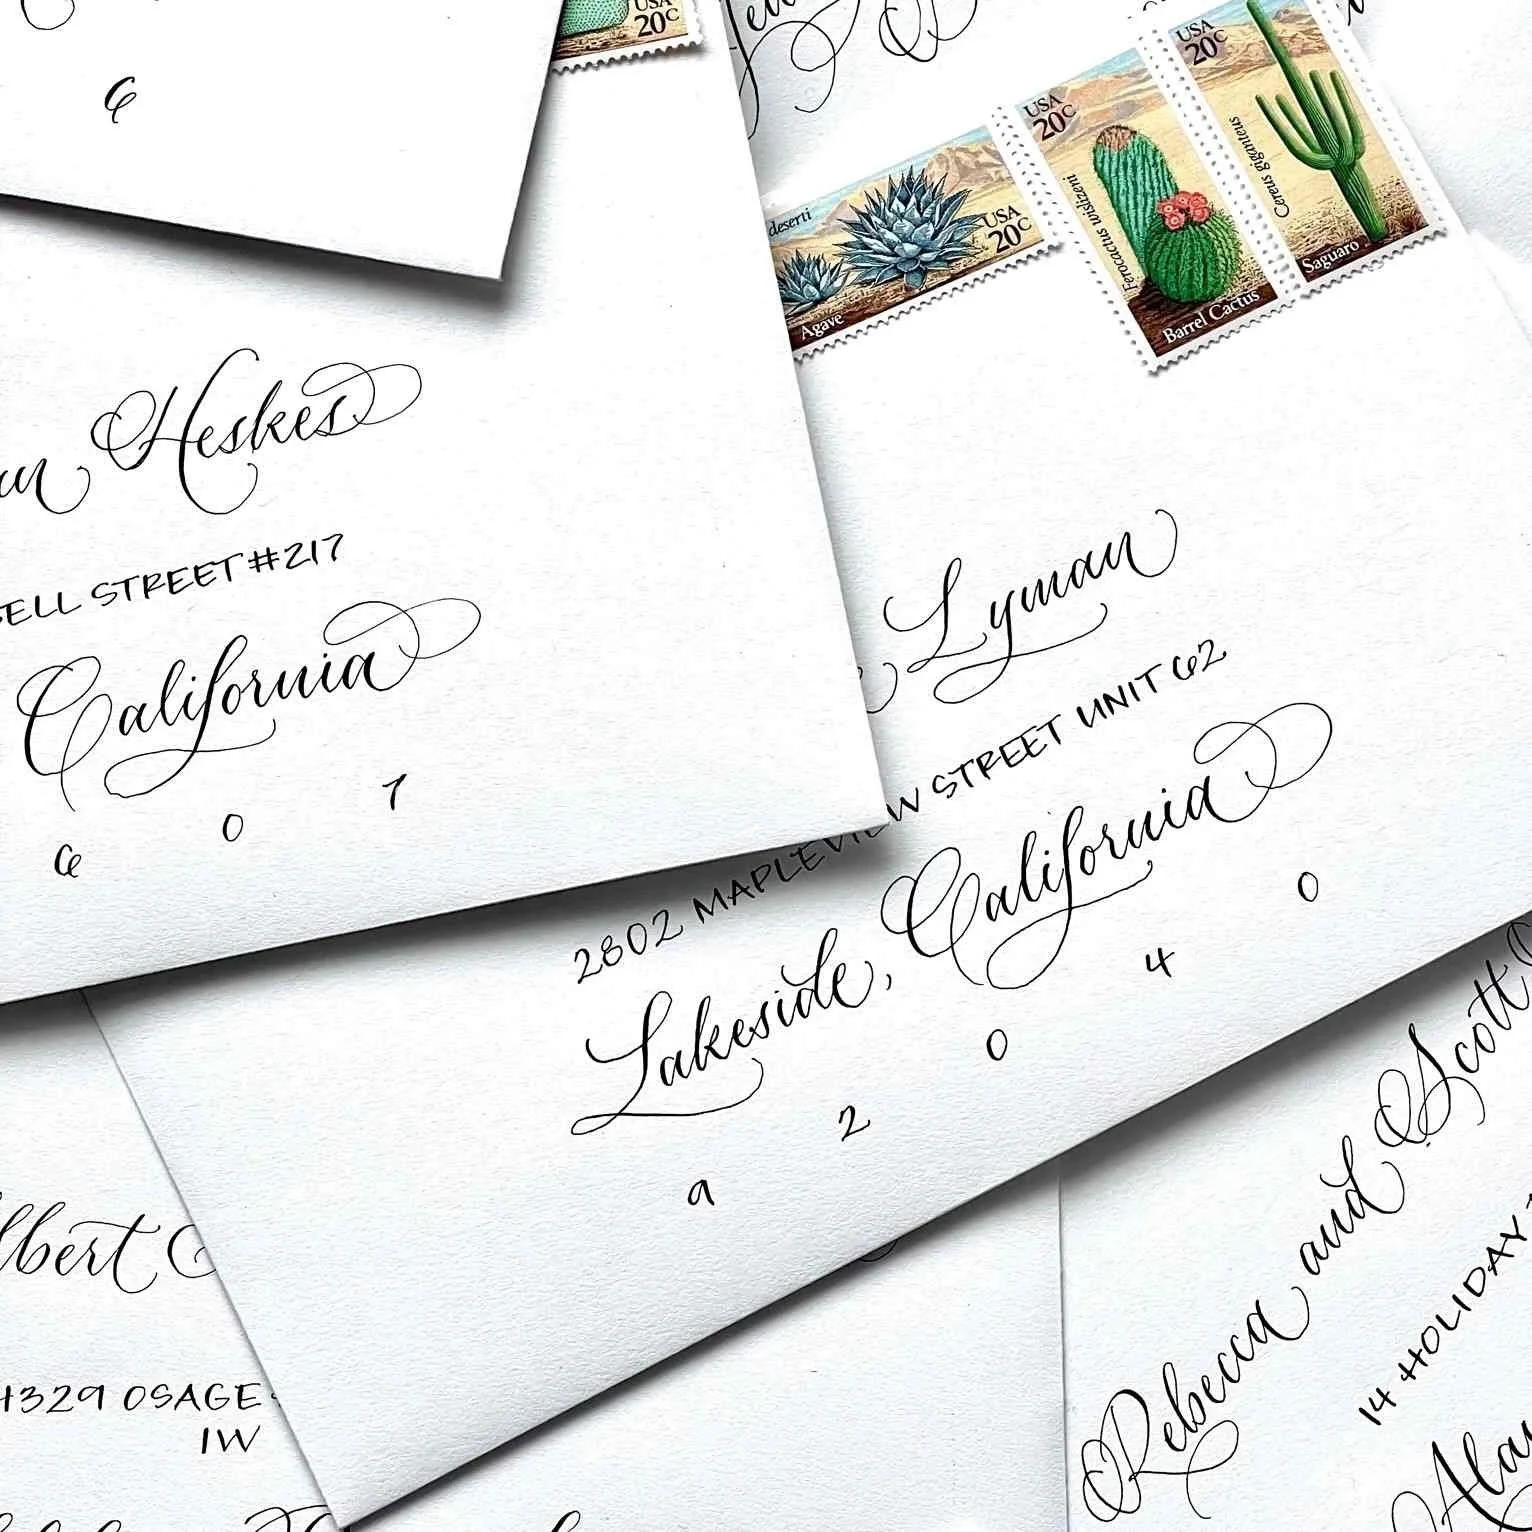 USA
20c
6
USA
20c
deserti
Agave
USA
20c
Ferocactus wislizeni
Barrel Cactus
USA
20c
Cereus giganteus
Saguaro
Heskes
STREET #217
California
6 0 7
Lyman
2802 MAPLEVIEW STREET UNIT 62
Lakeside, California
9 2 0 4 0
Rebecca and Scott
14 HOLIDAY
lbert
4329 OSAGE
1W